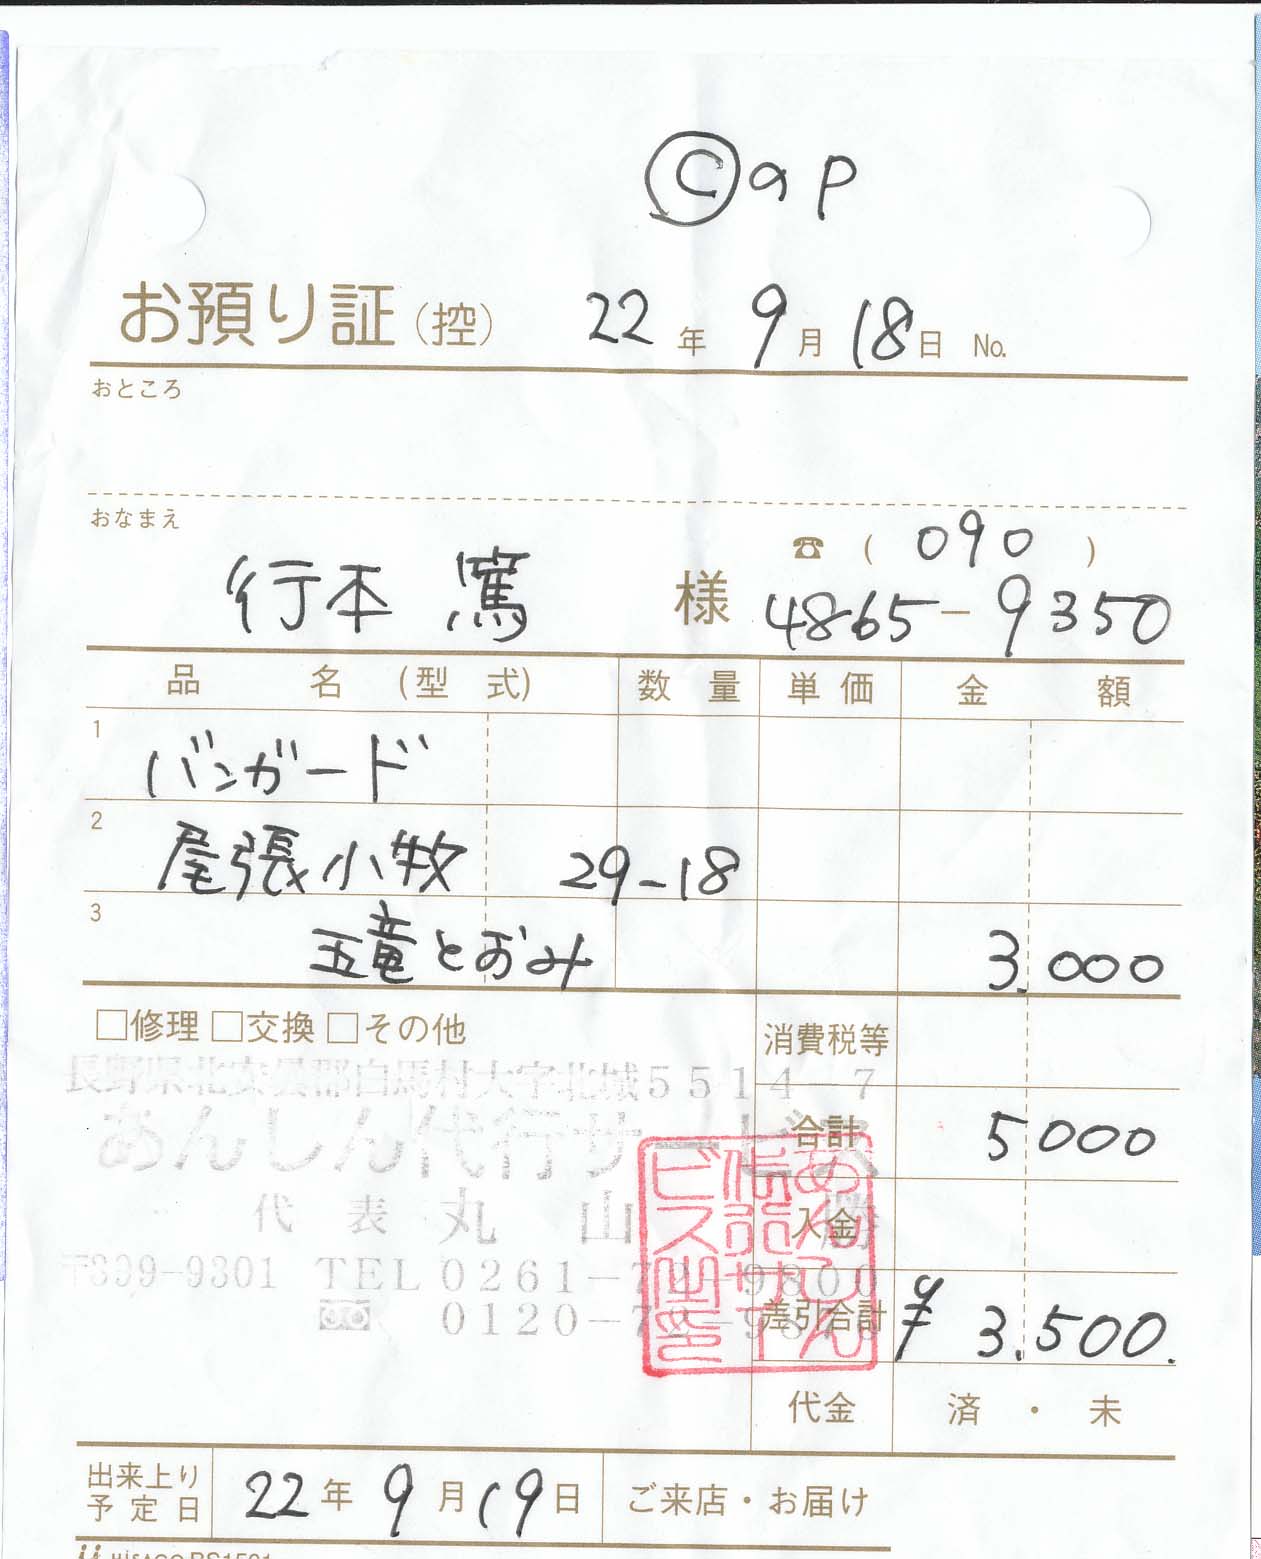 Ⓒap
お預り証(控) 22年 9月 18日 No.
おところ
おなまえ
☎ ( 090 )
行本 篤 様 4865-9350
品 名 (型 式) 数 量 単 価 金 額
1 バンガード
2 尾張小牧 29-18
3 五竜とおみ 3.000
□修理 □交換 □その他 消費税等
長野県北安曇郡白馬村大字北城5514-7
あんしん代行サービス 合計 5000
代表 丸山 勝 入金
〒399-9301 TEL 0261-72-9800
0120-72-98 差引合計 ¥ 3.500.
あんしん代行サービス之印
代金 済・未
出来上り予定日 22年 9月 19日 ご来店・お届け
HISAGO BS1501